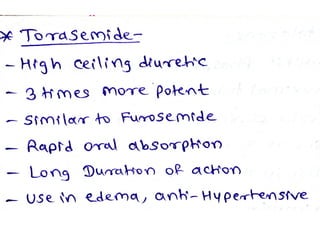 * Torasemide-
- High ceiling diuretic
- 3 times more potent
- Similar to Furosemide
- Rapid oral absorption
- Long Duration of action
- Use in edema, anti-Hypertensive